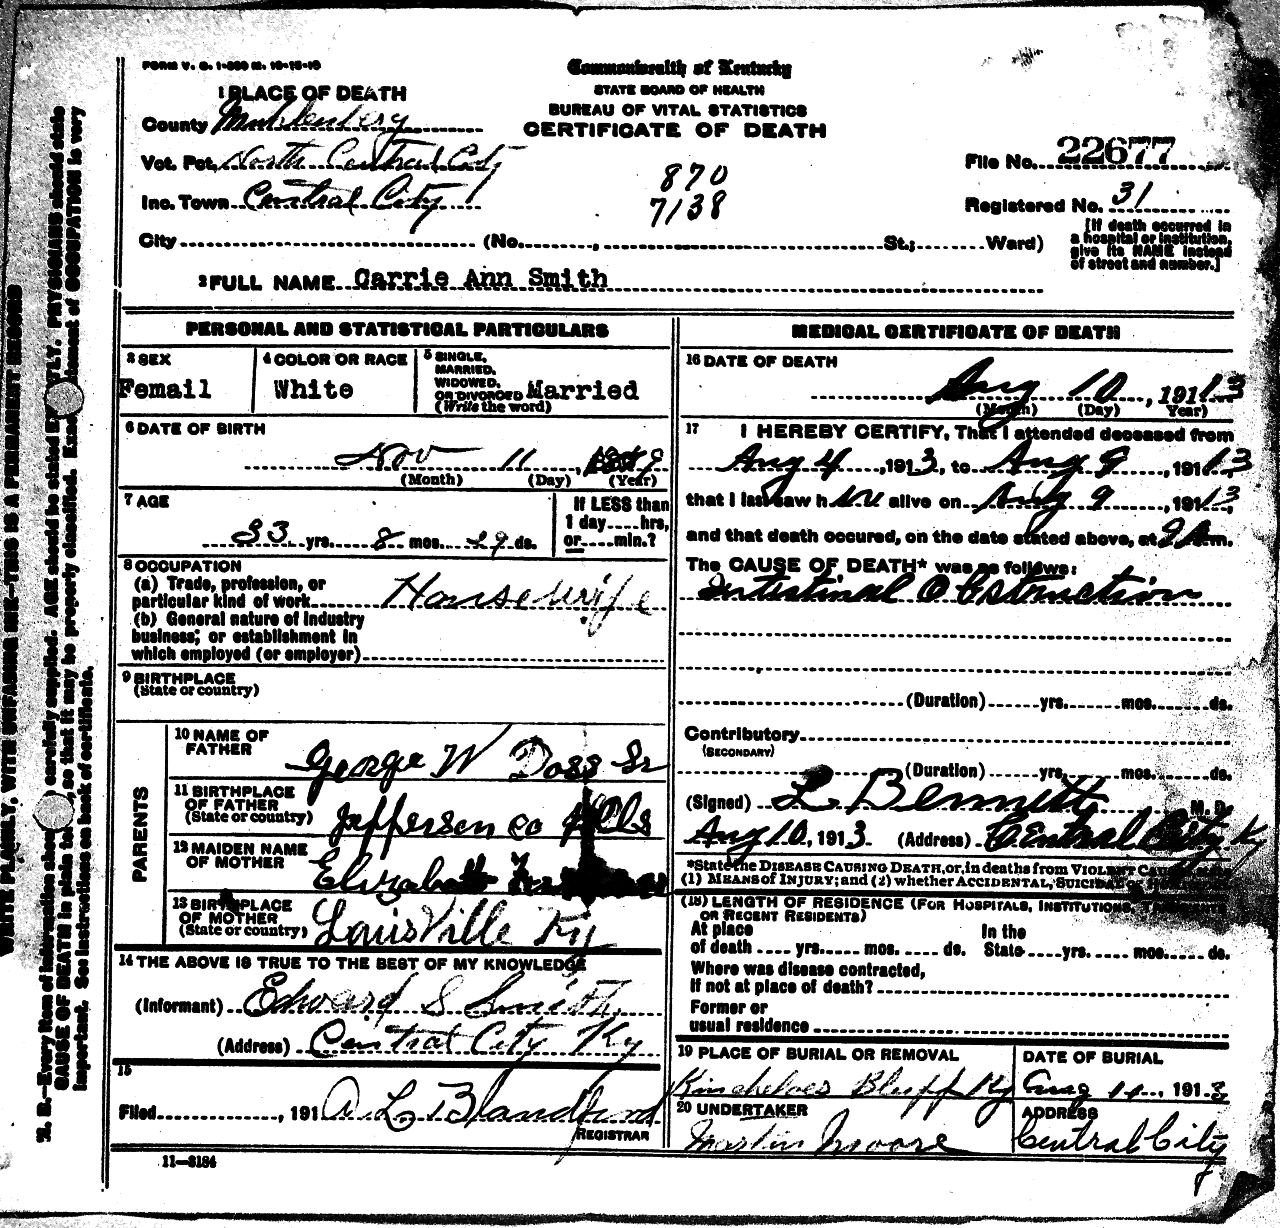 FORM V. S. 1-
Commonwealth of Kentucky
STATE BOARD OF HEALTH
BUREAU OF VITAL STATISTICS
CERTIFICATE OF DEATH
1 PLACE OF DEATH
County Muhlenberg
Vot. Pct. North Central City
Inc. Town Central City
870
7138
File No. 22677
Registered No. 31
City (No. , St.; Ward)
[If death occurred in
a hospital or institution,
give its NAME instead
of street and number.]
2 FULL NAME Carrie Ann Smith
PERSONAL AND STATISTICAL PARTICULARS
3 SEX
Femail
4 COLOR OR RACE
White
5 SINGLE,
MARRIED,
WIDOWED,
OR DIVORCED Married
(Write the word)
6 DATE OF BIRTH
Nov 11
(Month) (Day) (Year)
7 AGE
33 yrs. 8 mos. 29 ds.
If LESS than
1 day....hrs,
or.....min.?
8 OCCUPATION
(a) Trade, profession, or
particular kind of work Housewife
(b) General nature of industry
business; or establishment in
which employed (or employer)
9 BIRTHPLACE
(State or country)
PARENTS
10 NAME OF
FATHER George W Doss Sr
11 BIRTHPLACE
OF FATHER
(State or country) Jefferson co Ills
12 MAIDEN NAME
OF MOTHER Elizabeth
13 BIRTHPLACE
OF MOTHER
(State or country) LouisVille Ky
14 THE ABOVE IS TRUE TO THE BEST OF MY KNOWLEDGE
(Informant) Edward S Smith
(Address) Central City Ky
15
Filed , 191 A. L. Blandford
REGISTRAR
11—3184
MEDICAL CERTIFICATE OF DEATH
16 DATE OF DEATH
Aug 10, 19113
(Month) (Day) Year)
17 I HEREBY CERTIFY, That I attended deceased from
Aug 4, 1913, to Aug 9, 19113
that I last saw her alive on Aug 9, 19113,
and that death occured, on the date stated above, at 9 A.m.
The CAUSE OF DEATH* was as follows:
Intestinal Obstruction
(Duration) yrs. mos. ds.
Contributory
(SECONDARY)
(Duration) yrs. mos. ds.
(Signed) L. Bennett M. D.
Aug 10, 1913. (Address) Central City Ky
*State the DISEASE CAUSING DEATH, or, in deaths from VIOLENT
(1) MEANS of INJURY; and (2) whether ACCIDENTAL, SUICIDAL or
(18) LENGTH OF RESIDENCE (FOR HOSPITALS, INSTITUTIONS,
OR RECENT RESIDENTS)
At place In the
of death yrs. mos. ds. State yrs. mos. ds.
Where was disease contracted,
If not at place of death?
Former or
usual residence
19 PLACE OF BURIAL OR REMOVAL
Kincheloes Bluff Ky
DATE OF BURIAL
Aug 11, 1913
20 UNDERTAKER
Martin Moore
ADDRESS
Central City
WRITE PLAINLY, WITH UNFADING INK—THIS IS A PERMANENT RECORD
N. B.—Every item of information should carefully supplied. AGE should be stated EXACTLY. PHYSICIANS should state
CAUSE OF DEATH in plain terms, so that it may be properly classified. Exact statement of OCCUPATION is very
important. See instructions on back of certificate.